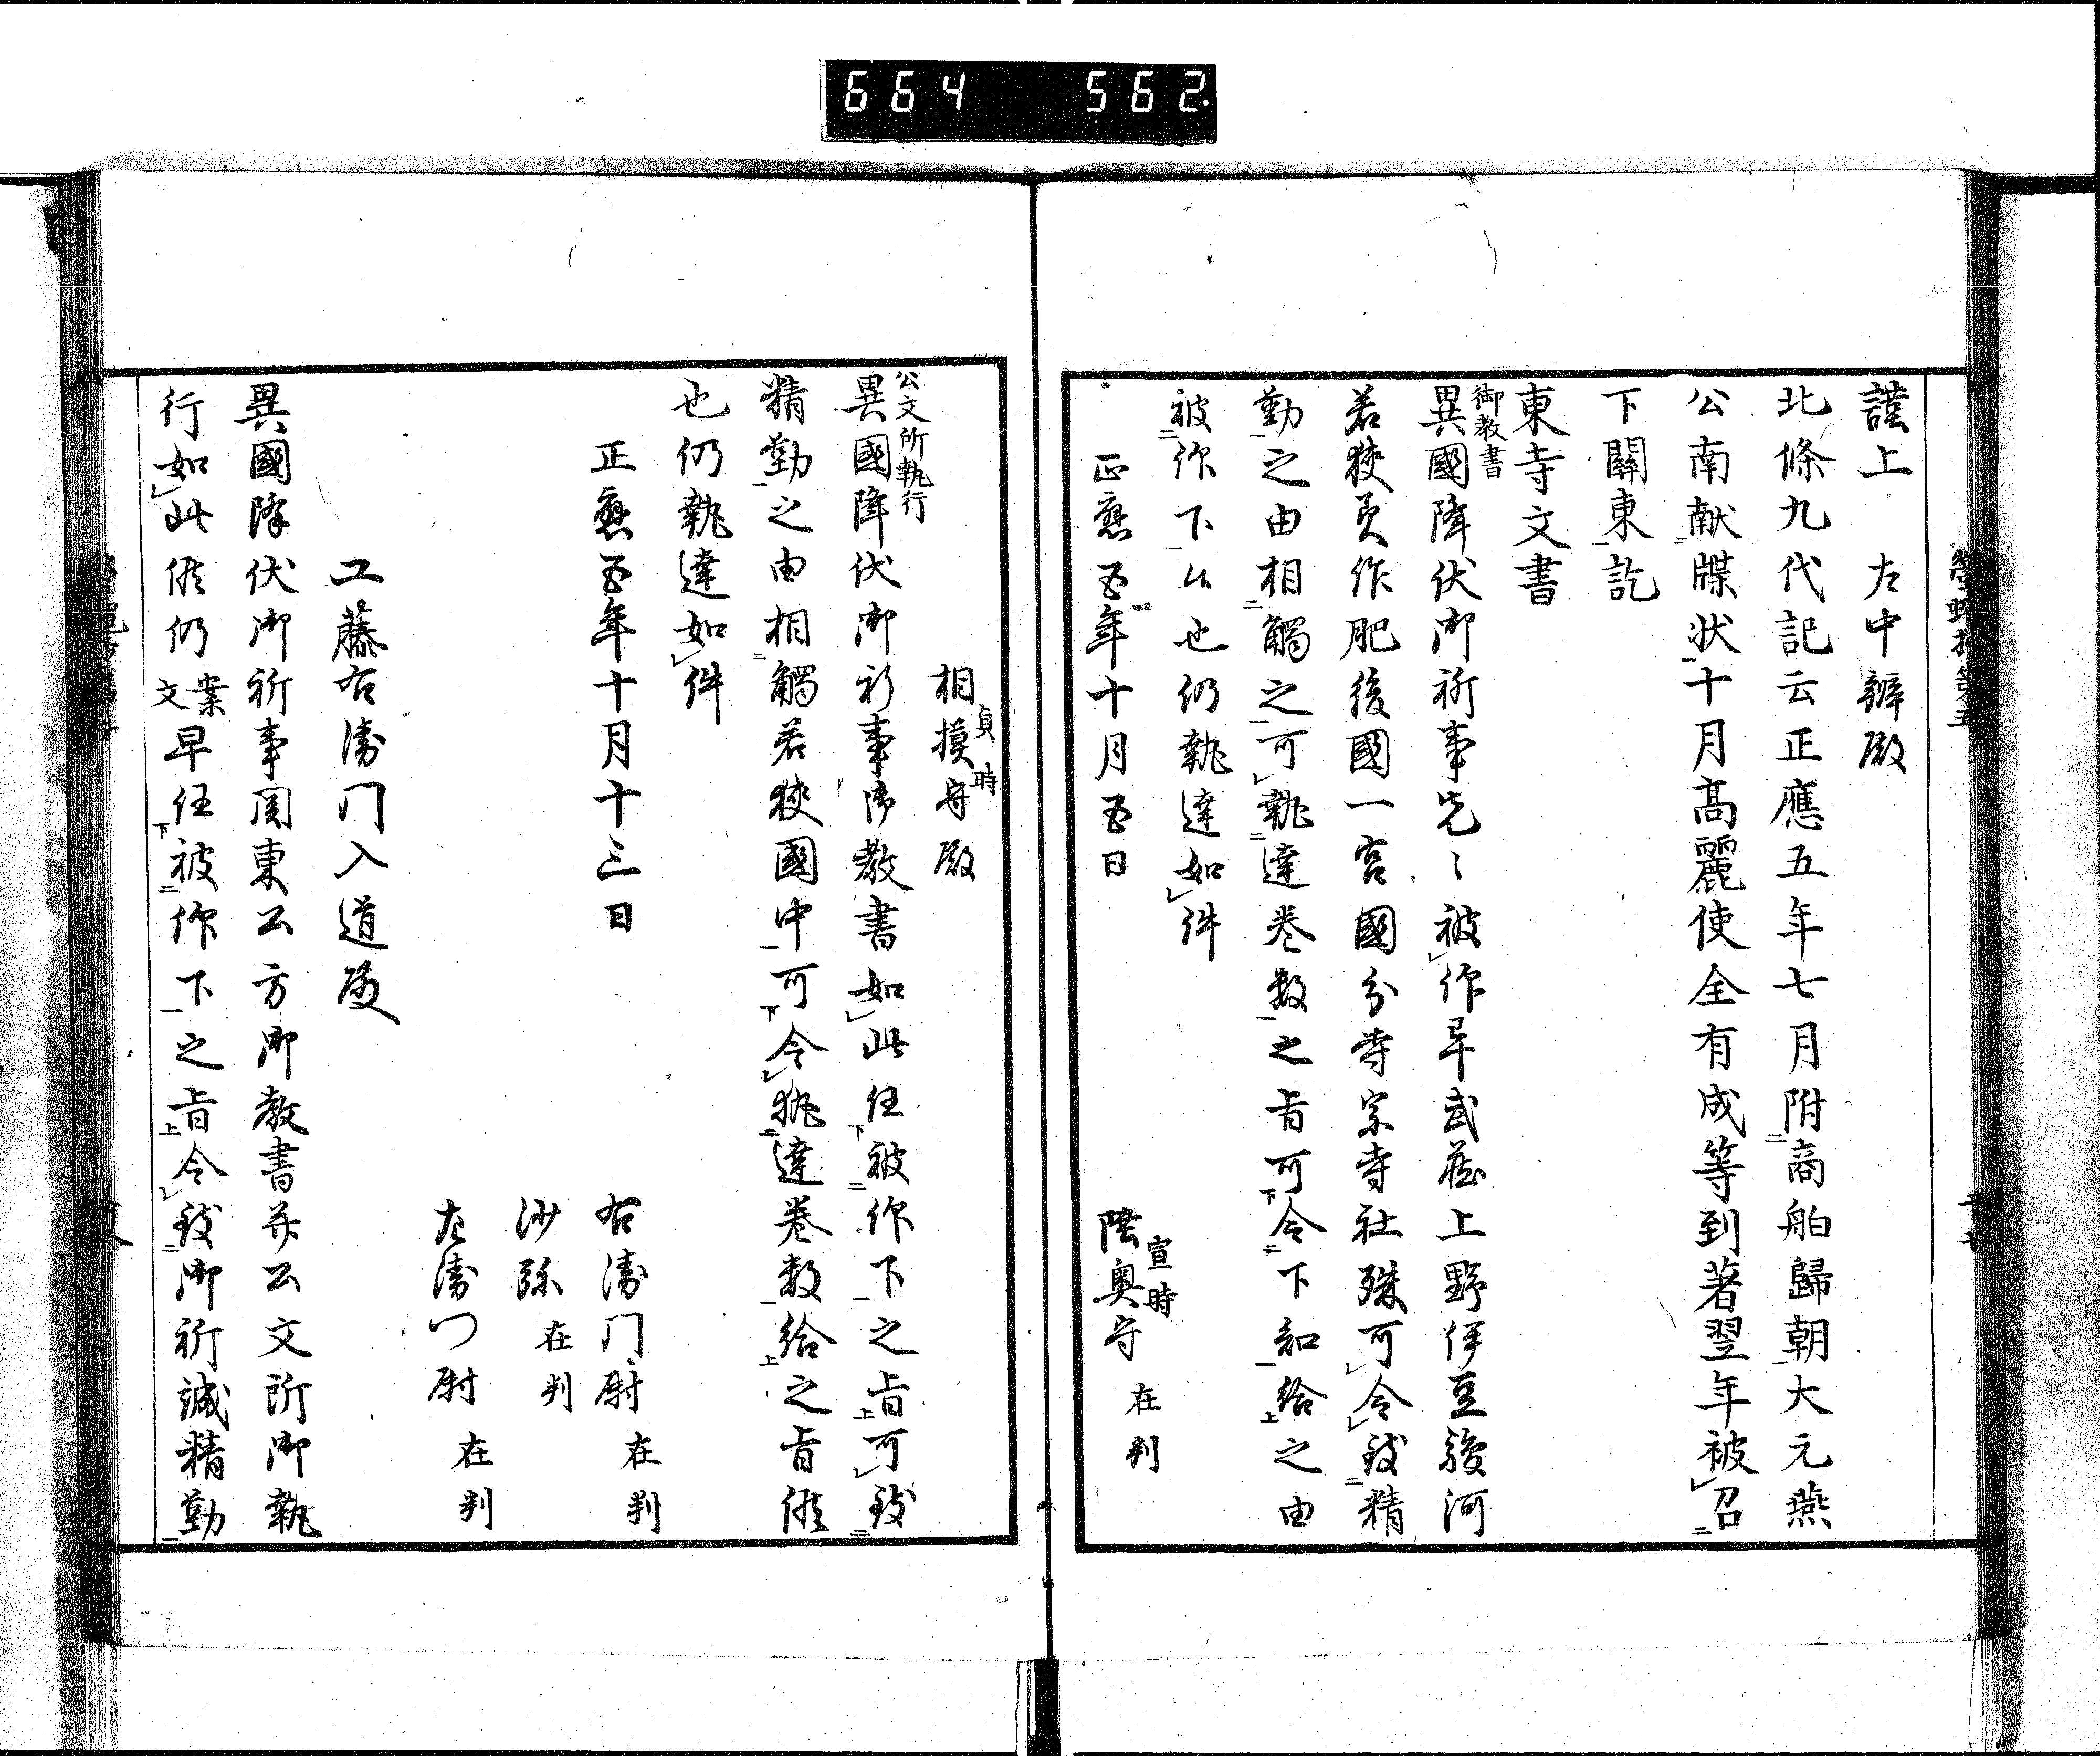 664 562
謹上 左中辨殿
北條九代記云正應五年七月附商舶歸朝大元燕
公南献牒状十月高麗使全有成等到著翌年被召
下關東訖
東寺文書
御教書
異國降伏御祈事先〻被仰畢武蔵上野伊豆駿河
若狭美作肥後國一宮國分寺宗寺社殊可令致精
勤之由相觸之可執達巻数之旨可令下知給之由
被仰下候也仍執達如件
正應五年十月五日
宣時
陸奥守 在判
貞時
相摸守殿
公文所執行
異國降伏御祈事御教書如此任被仰下之旨可致
精勤之由相觸若狭國中可令執達巻数給之旨候
也仍執達如件
正應五年十月十三日
右衛门尉 在判
沙弥 在判
左衛门尉 在判
工藤右衛门入道殿
異國降伏御祈事関東公方御教書并公文所御執
行如此候仍案文早任被仰下之旨令致御祈誠精勤